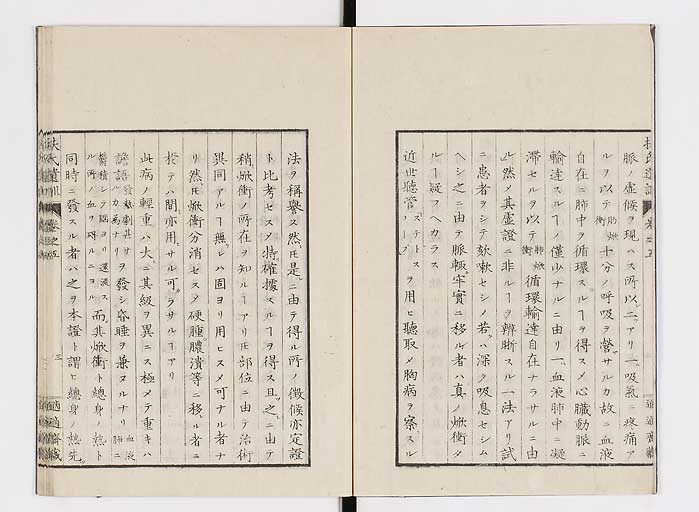 脉ノ虚候ヲ現ハス所以二アリ一吸氣ニ疼痛ア
ルヲ以テ肋焮衝十分ノ呼吸ヲ營サルカ故ニ血液
自在ニ肺中ヲ循環スルヿヲ得スメ心臓動脈ニ
輸達スルヿノ僅少ナルニ由リ一血液肺中ニ凝
滞セルヲ以テ肺焮衝循環輸達自在ナラサルニ由
ル然メ其虚證ニ非ルヿヲ辨晣スル一法アリ試
ニ患者ヲシテ欬嗽セシメ若ハ深ク吸息セシム
ヘシ之ニ由テ脈輙牢實ニ移ル者ハ真ノ焮衝タ
ルヿ疑フヘカラス
近世聽管ステトスコープヲ用ヒ聽取メ胸病ヲ察スル
法ヲ稱譽ス然ルニ是ニ由テ得ル所ノ徴候亦定證
ト比考セスメ特確據スルヿヲ得ス且之ニ由テ
稍焮衝ノ所在ヲ知ルヿアリ部位ニ由テ治術
異同アルヿ無シハ固ヨリ用ヒスメ可ナル者ナ
リ然焮衝分消セスメ硬腫膿潰等ニ移ル者ニ
於テハ間亦用サル可ラサルヿアリ
此病ノ輕重ハ大ニ其級ヲ異ニス極メテ重キハ
譫語發ルカ為ナリヲ發シ昏睡ヲ兼ヌルナリ血液肺ニ
鬱積シテ腦ヨリ還流スル所ノ血ヲ碍ルニヨル而其焮衝ト總身ノ熱ト
同時ニ發スル者ハ之ヲ本證ト謂ヒ總身ノ熱先
扶氏遺訓
卷之五
三
適適齋藏